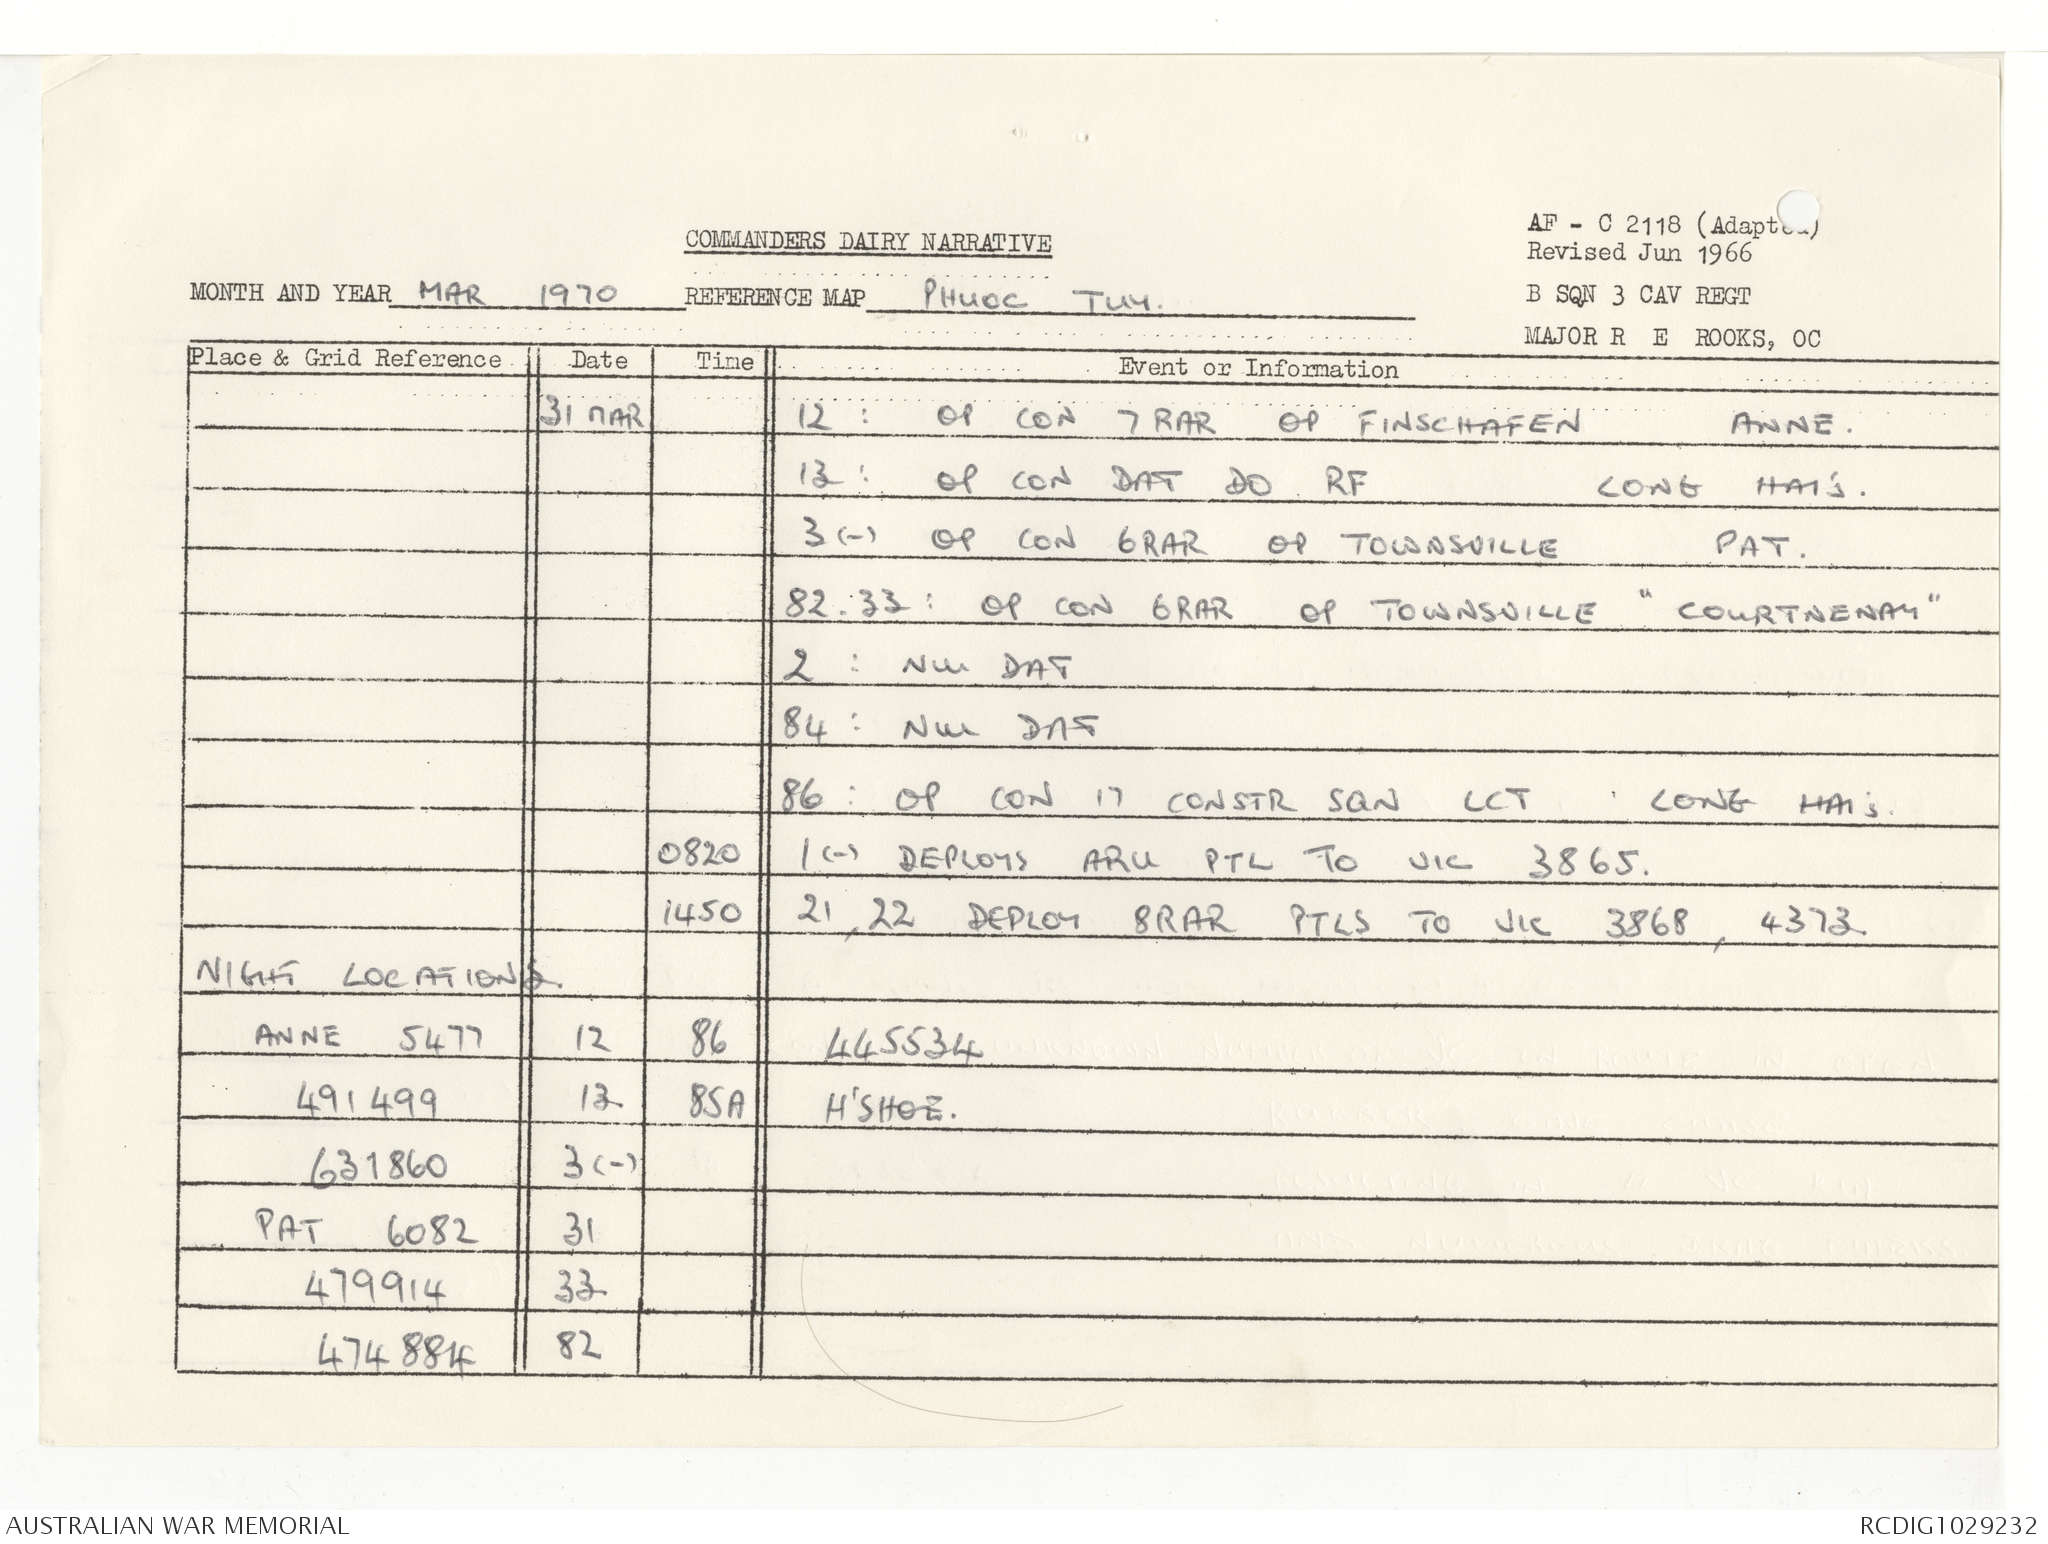 AF - C 2118 (Adapted)
Revised Jun 1966
COMMANDERS DAIRY NARRATIVE
MONTH AND YEAR MAR 1970 REFERENCE MAP PHUOC TUY. B SQN 3 CAV REGT
MAJOR R E ROOKS, OC
Place & Grid Reference Date Time Event or Information
31 MAR 12 : OP CON 7 RAR OP FINSCHAFEN ANNE.
13 : OP CON DAT DO RF LONG HAI'S.
3 (-) OP CON 6RAR OP TOWNSVILLE PAT.
82.33 : OP CON 6RAR OP TOWNSVILLE "COURTNENAY"
2 : NUI DAT
84 : NUI DAT
86 : OP CON 17 CONSTR SQN LCT LONG HAI's.
0820 1 (-) DEPLOYS ARU PTL TO VIC 3865.
1450 21, 22 DEPLOY 8RAR PTLS TO VIC 3868, 4373
NIGHT LOCATIONS.
ANNE 5477 12 86 445534
491499 13 85A H'SHOE.
631860 3 (-)
PAT 6082 31
479914 33
474884 82
AUSTRALIAN WAR MEMORIAL RCDIG1029232